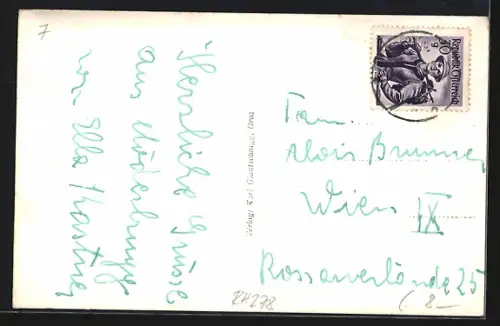 7
Herzliche Grüsse
aus Möderbrugg
von Ella Kastner
Verlag: Karl
Graz
Republik Österreich
30 g
Fam.
Alois Brunner
Wien
IX
Rossauerlände 25
RH278
8-